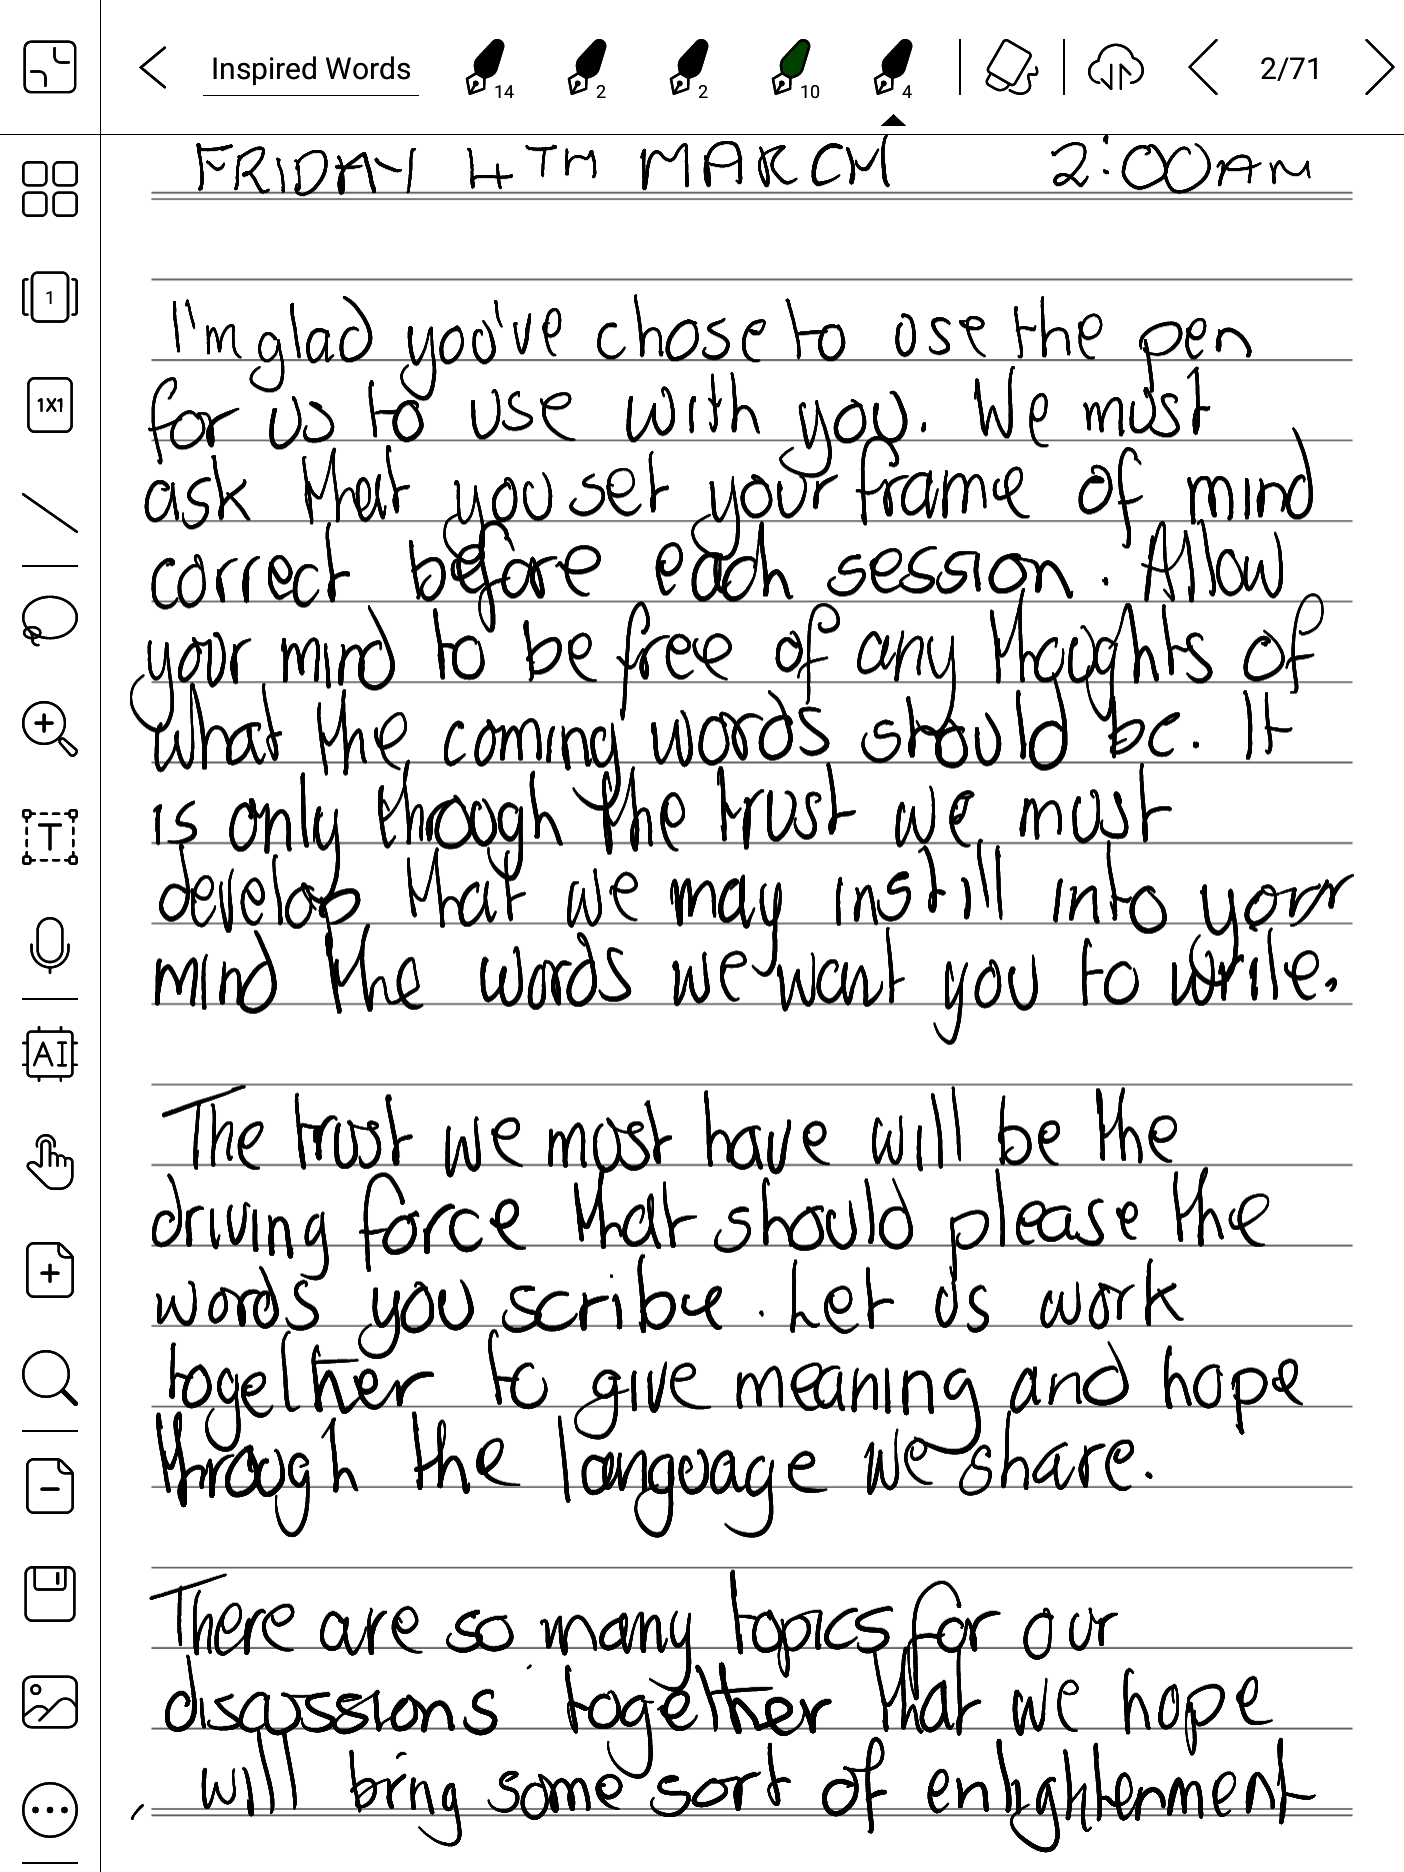 Inspired Words
14
2
2
10
4
2/71
1
1X1
T
AI
FRIDAY 4TH MARCH 2:00AM
I'm glad you've chose to use the pen
for us to use with you. We must
ask that you set your frame of mind
correct before each session. Allow
your mind to be free of any thoughts of
what the coming words should be. It
is only through the trust we must
develop that we may instill into your
mind the words we want you to write.
The trust we must have will be the
driving force that should please the
words you scribe. Let us work
together to give meaning and hope
through the language we share.
There are so many topics for our
discussions together that we hope
will bring some sort of enlightenment